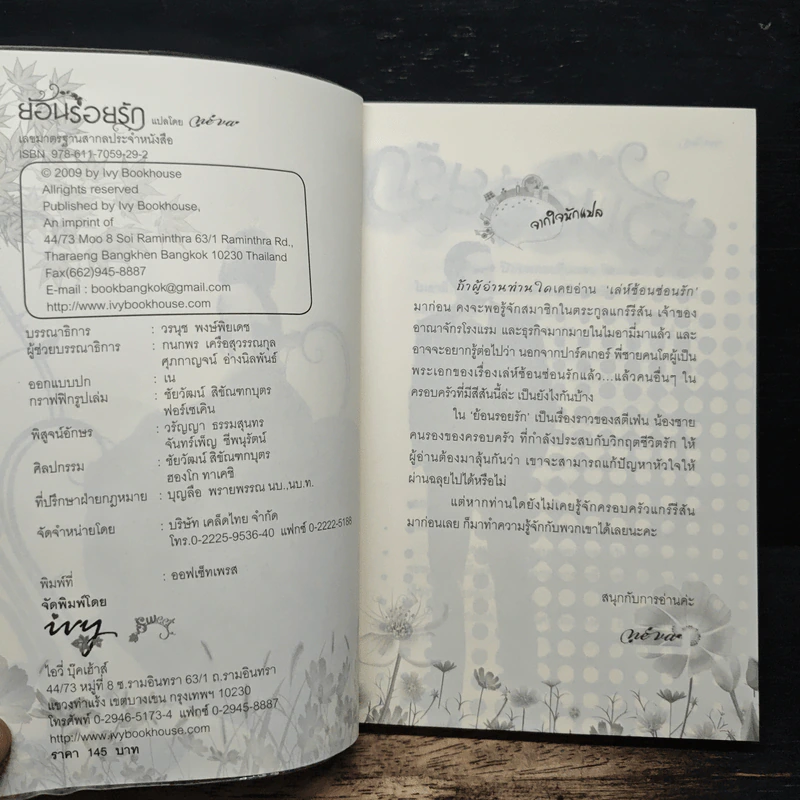 ย้อนรอยรัก แปลโดย
เลขมาตรฐานสากลประจำหนังสือ
ISBN 978-611-7059-29-2
© 2009 by Ivy Bookhouse
Allrights reserved
Published by Ivy Bookhouse,
An imprint of
44/73 Moo 8 Soi Raminthra 63/1 Raminthra Rd.,
Tharaeng Bangkhen Bangkok 10230 Thailand
Fax(662)945-8887
E-mail : bookbangkok@gmail.com
http://www.ivybookhouse.com
บรรณาธิการ : วรนุช พงษ์พิยเดช
ผู้ช่วยบรรณาธิการ : กนกพร เครือสุวรรณกุล
ศุภกาญจน์ อ่างนิลพันธ์
ออกแบบปก : เน
กราฟฟิกรูปเล่ม : ชัยวัฒน์ สิขัณฑกบุตร
ฟอร์เซเคิน
พิสูจน์อักษร : วรัญญา ธรรมสุนทร
จันทร์เพ็ญ ชีพนุรัตน์
ศิลปกรรม : ชัยวัฒน์ สิขัณฑกบุตร
ฮองโก ทาเคชิ
ที่ปรึกษาฝ่ายกฎหมาย : บุญลือ พรายพรรณ นบ.,นบ.ท.
จัดจำหน่ายโดย : บริษัท เคล็ดไทย จำกัด
โทร.0-2225-9536-40 แฟกซ์ 0-2222-5188
พิมพ์ที่ : ออฟเซ็ทเพรส
จัดพิมพ์โดย
ivy
ไอวี่ บุ๊คเฮ้าส์
44/73 หมู่ที่ 8 ซ.รามอินทรา 63/1 ถ.รามอินทรา
แขวงท่าแร้ง เขตบางเขน กรุงเทพฯ 10230
โทรศัพท์ 0-2946-5173-4 แฟกซ์ 0-2945-8887
http://www.ivybookhouse.com
ราคา 145 บาท
จากใจนักแปล
ถ้าผู้อ่านท่านใดเคยอ่าน ‘เล่ห์ซ้อนซ่อนรัก’
มาก่อน คงจะพอรู้จักสมาชิกในตระกูลแกร์รีสัน เจ้าของ
อาณาจักรโรงแรม และธุรกิจมากมายในไมอามี่มาแล้ว และ
อาจจะอยากรู้ต่อไปว่า นอกจากปาร์คเกอร์ พี่ชายคนโตผู้เป็น
พระเอกของเรื่องเล่ห์ซ้อนซ่อนรักแล้ว...แล้วคนอื่นๆ ใน
ครอบครัวที่มีสีสันนี้ล่ะ เป็นยังไงกันบ้าง
ใน ‘ย้อนรอยรัก’ เป็นเรื่องราวของสตีเฟน น้องชาย
คนรองของครอบครัว ที่กำลังประสบกับวิกฤตชีวิตรัก ให้
ผู้อ่านต้องมาลุ้นกันว่า เขาจะสามารถแก้ปัญหาหัวใจให้
ผ่านฉลุยไปได้หรือไม่
แต่หากท่านใดยังไม่เคยรู้จักครอบครัวแกร์รีสัน
มาก่อนเลย ก็มาทำความรู้จักกับพวกเขาได้เลยนะคะ
สนุกกับการอ่านค่ะ